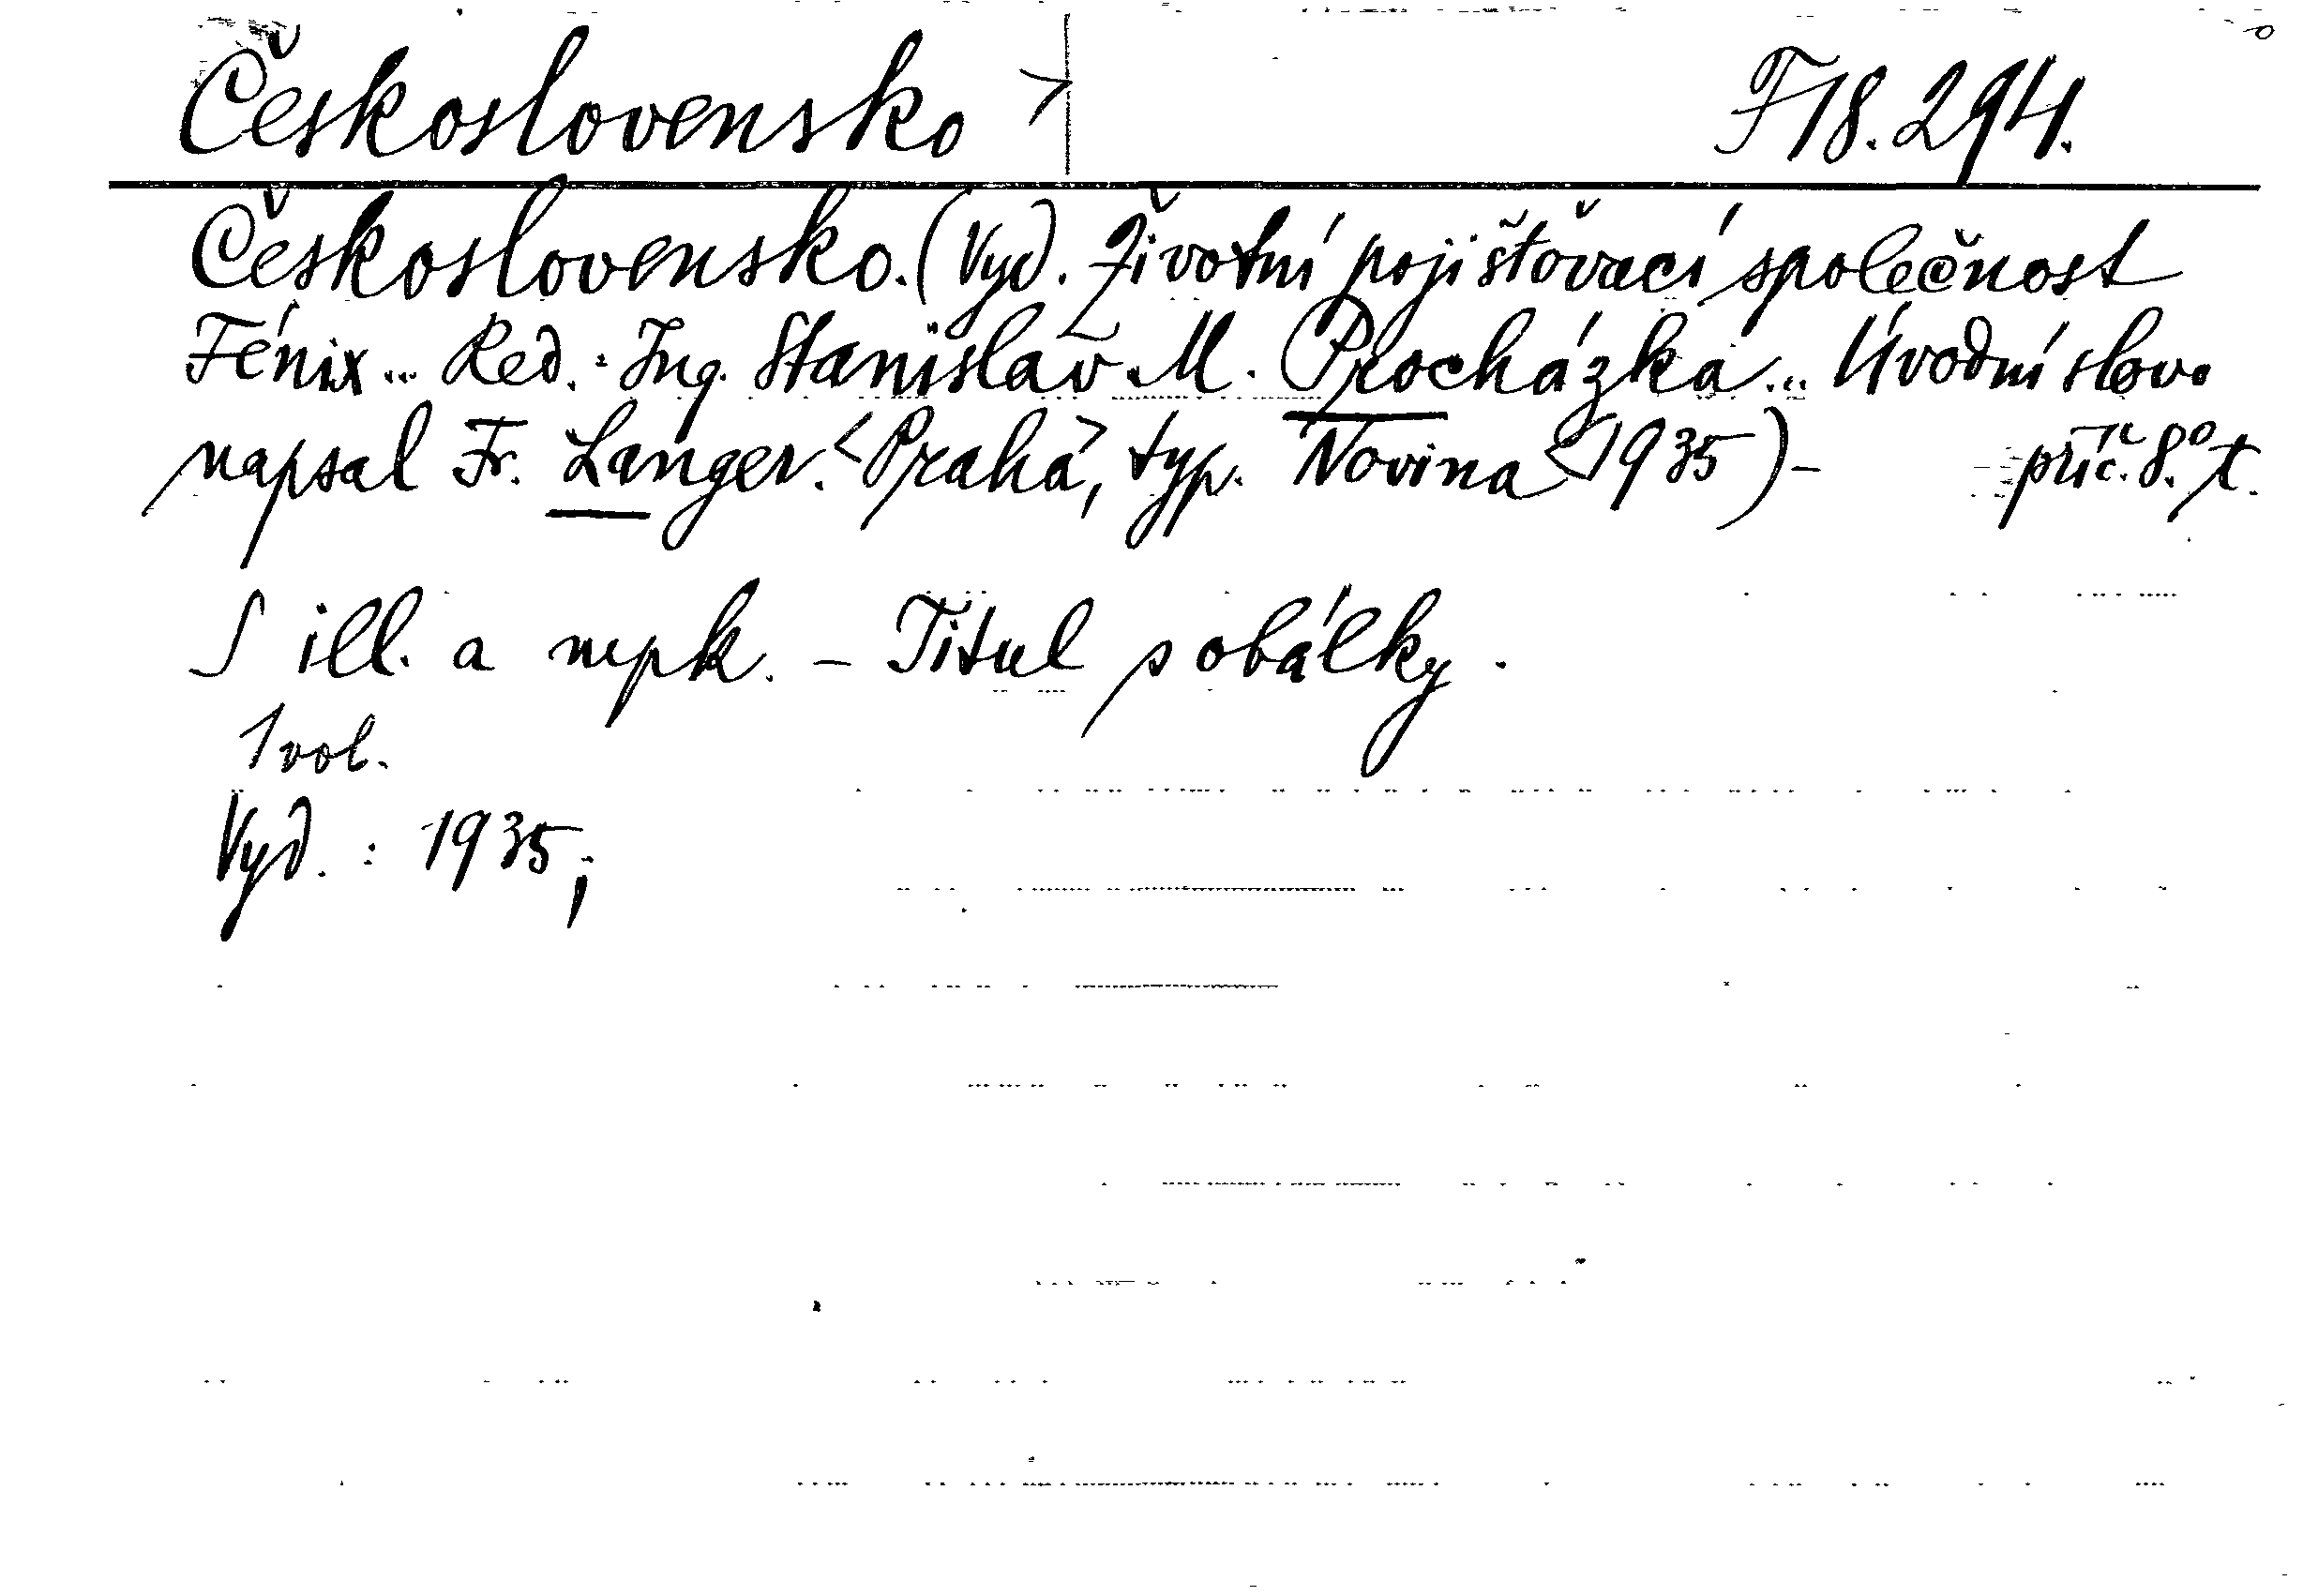 Československo F 18.294.
Československo. (Vyd. Životní pojišťovací společnost
Fénix... Red.: Ing. Stanislav M. Procházka... Úvodní slovo
napsal Fr. Langer. <Praha>, typ. Novina <1935) - příč. 8.° t.
S ill. a mpk. - Titul s obálky.
1 vol.
Vyd. : 1935;